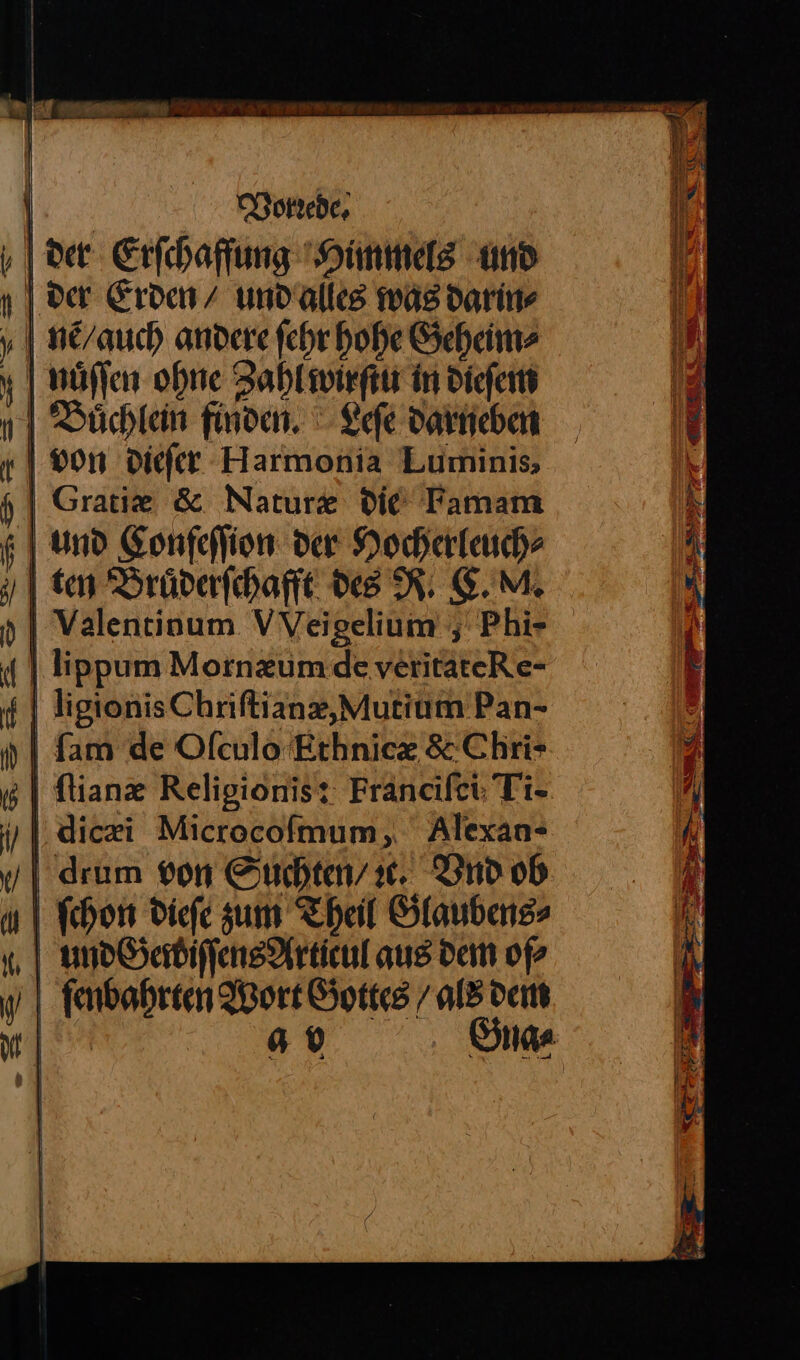 Vorrede.
der Erſchaffung Himmels und
der Erden / und alles was darin⸗
nẽ/auch andere ſehr hohe Geheim⸗
nuͤſſen ohne Zahl wirſtu in dieſem
Buͤchlein finden. Leſe darneben
von dieſer Harmonia Luminis,
Gratiæ & Naturæ die Famam
und Confeſſion der Hocherleuch⸗
ten Bruͤderſchafft des R. C. M.
Valentinum VVeigelium, Phi-
lippum Mornæum de veritate Re-
ligionis Chriſtianæ, Mutium Pan-
ſam de Oſculo Ethnicæ & Chri-
ſtianæ Religionis: Franciſci Ti-
dicæi Microcoſmum, Alexan-
drum von Suchten/ ꝛc. Vnd ob
ſchon dieſe zum Theil Glaubens⸗
und Gewiſſens Articul aus dem of⸗
fenbahrten Wort Gottes / als dem
a v Gna⸗